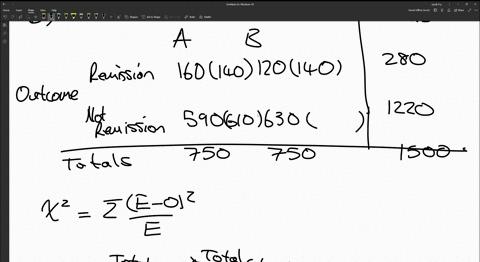 A B
Remission 160(140) 120(140) 280
Outcome
Not Remission 590(610) 630( ) 1220
Totals 750 750 1500
χ² = Σ (E-O)²
E
Total Total